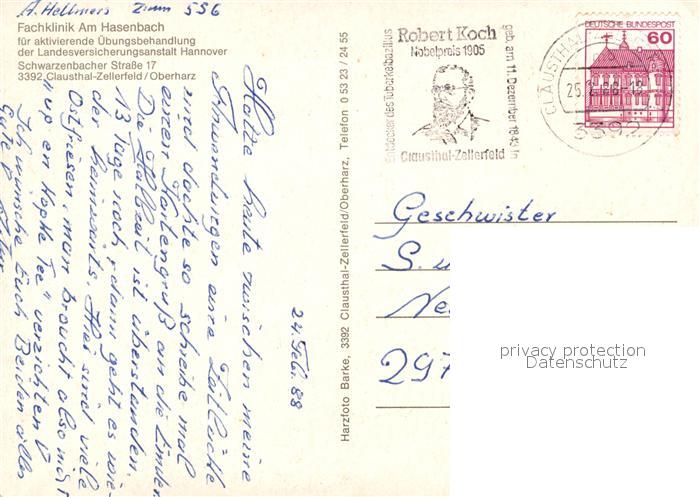 A. Hellmers Zimm 556
Fachklinik Am Hasenbach
für aktivierende Übungsbehandlung
der Landesversicherungsanstalt Hannover
Schwarzenbacher Straße 17
3392 Clausthal-Zellerfeld/Oberharz
Hatte heute zwischen meine
Anwendungen eine Zeitlücke
und dachte so schreibe mal
einen Kartengruß an die Linden
Die Halbzeit ist überstanden
13 Tage noch, dann geht es wie-
der heimwärts. Hier sind viele
Ostfriesen, man braucht also nicht
"up en Koppke Tee" verzichten
Ich wünsche Euch Beiden alles
Gute
24. Feb. 88
Harzfoto Barke, 3392 Clausthal-Zellerfeld/Oberharz, Telefon 0 53 23 / 24 55
Entdecker des Tuberkelbazillus
Robert Koch
Nobelpreis 1905
geb. am 11. Dezember 1843 in
Clausthal-Zellerfeld
CLAUSTHAL
25.2.88-18
3392
DEUTSCHE BUNDESPOST
60
Geschwister
S. u
Ne
297
privacy protection
Datenschutz